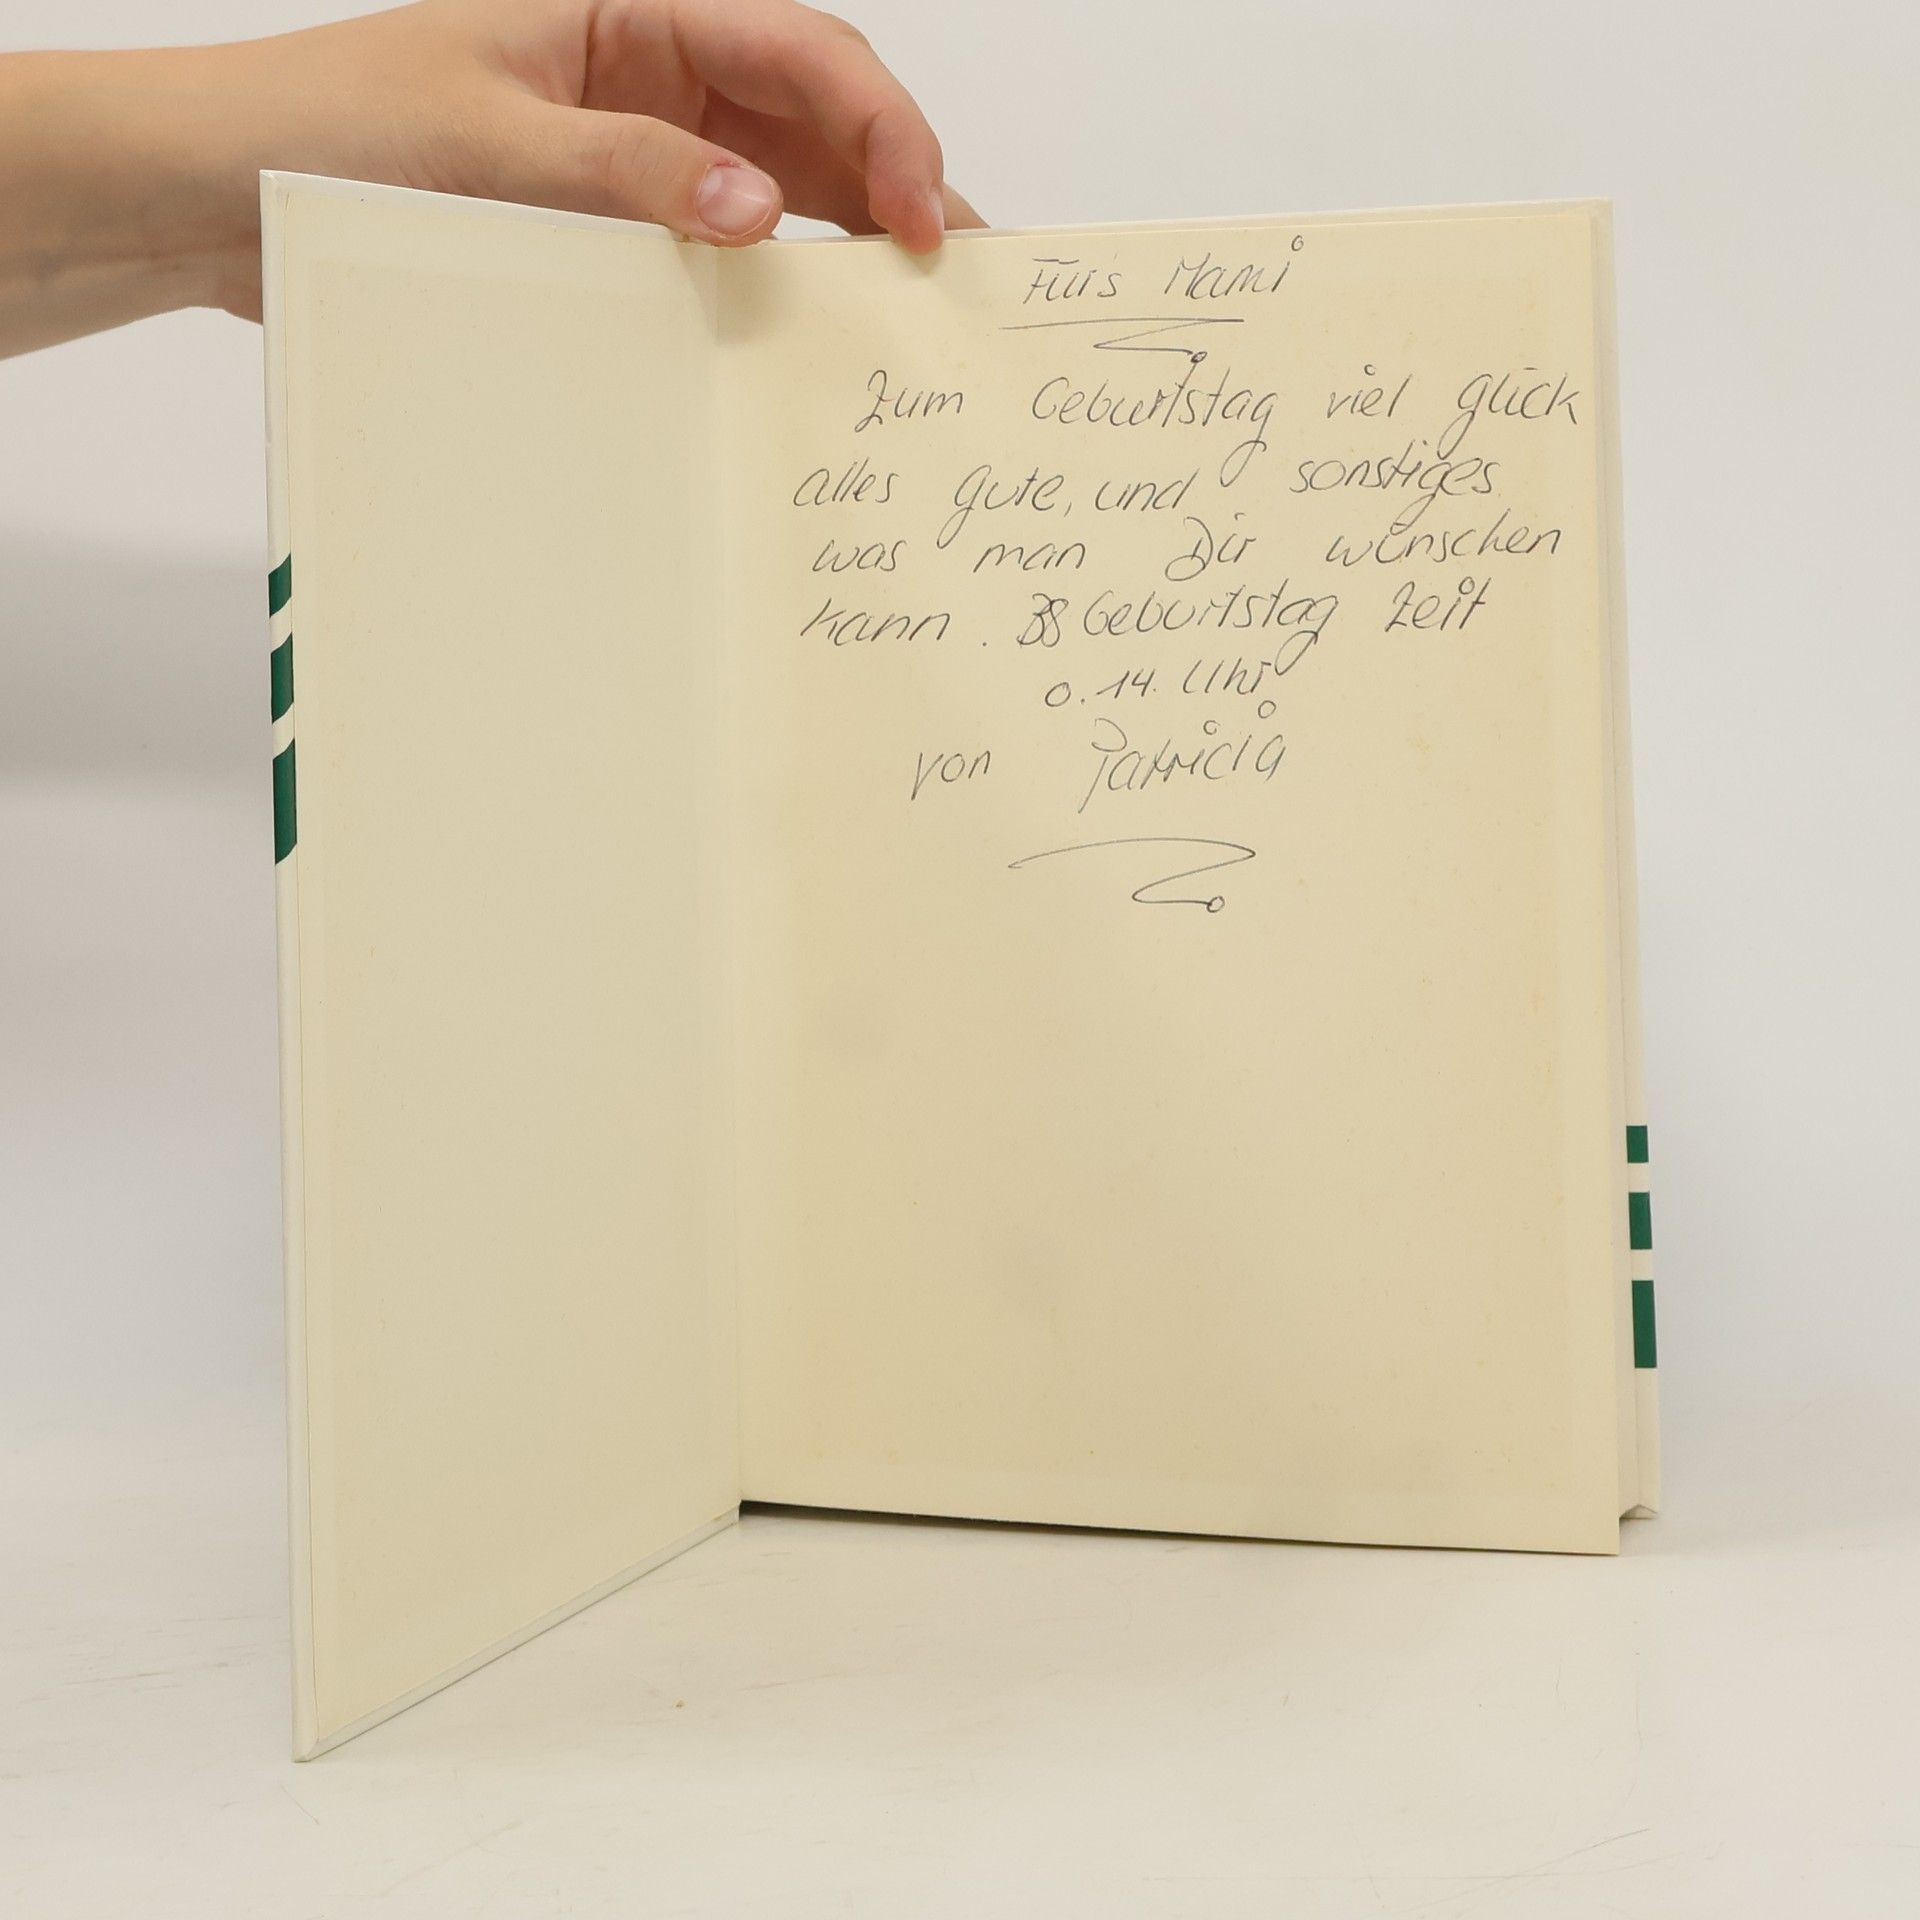 Für's Mami
Zum Geburtstag viel Glück
alles gute, und sonstiges
was man Dir wünschen
kann. 38 Geburtstag Zeit
0.14. Uhr
von Patricia